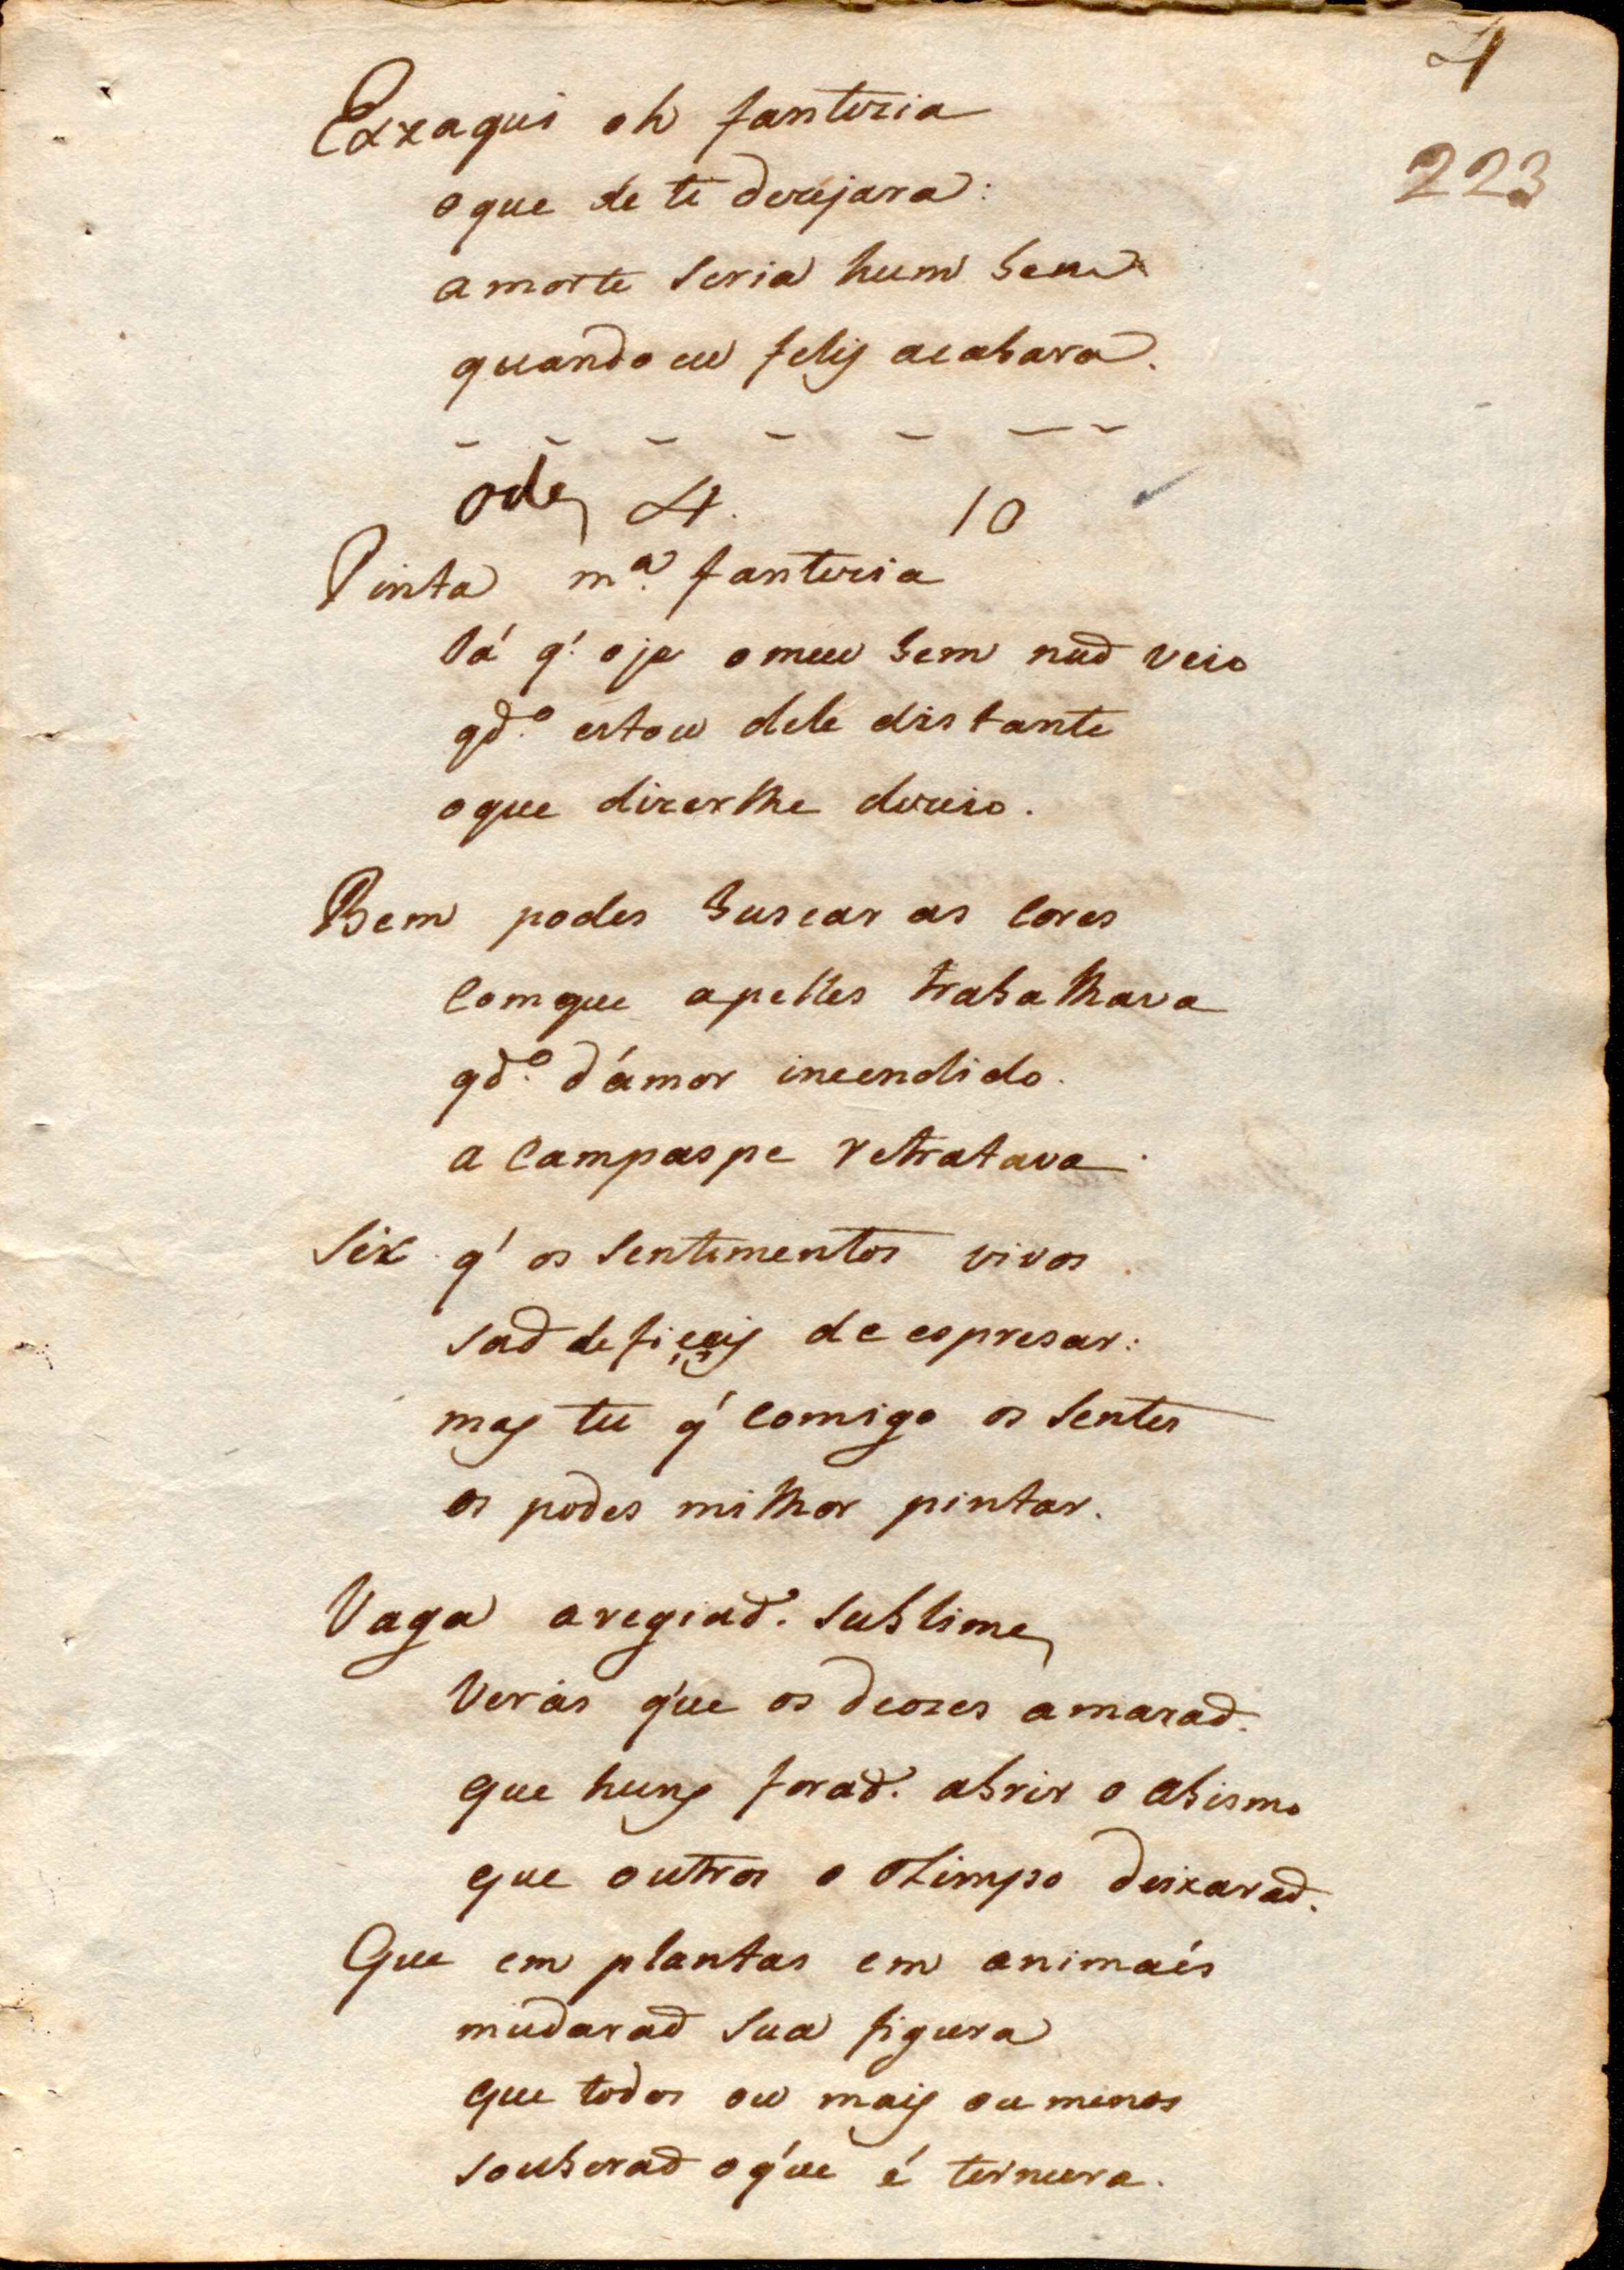 4
223
Exxaqui oh fantezia
o que de ti dezejara:
a morte seria hum bem
quando eu felis acabara.
Ode 4. 10
Pinta m.ª fantezia
Já q' oje o meu bem naõ vejo
qd.º estou dele distante
o que dizerlhe dezejo.
Bem podes buscar as cores
Com que apelles trabalhava
qd.º d'ámor incendido.
a Campaspe retratava.
Sei q' os sentimentos vivos
saõ deficeis de espresar:
mas tu q' comigo os sentes
os podes milhor pintar.
Vaga a regiaõ. sublime,
Verás que os deozes amaraõ.
que huns foraõ. abrir o abismo
que outros o Olimpo deixaraõ.
Que em plantas em animais
mudaraõ sua figura
que todos ou mais ou menos
souberaõ o que é ternura.